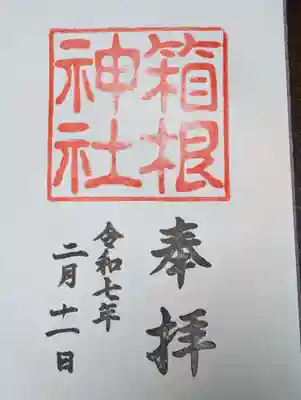 箱根
神社
奉拝
令和七年
二月十一日